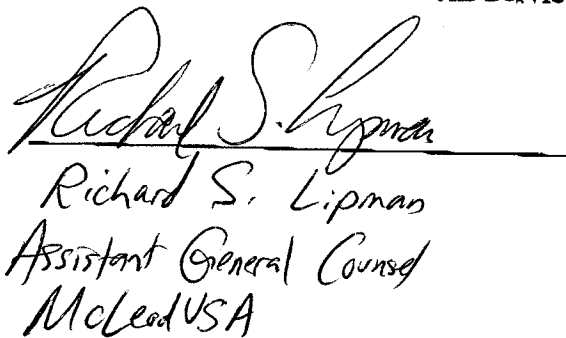 Richard S. Lipman
Richard S. Lipman
Assistant General Counsel
McLeodUSA